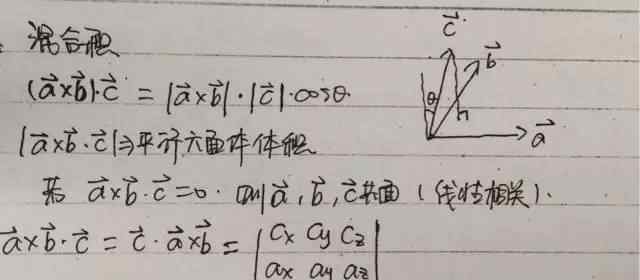 混合积
(a⃗×b⃗)·c⃗ = |a⃗×b⃗|·|c⃗|·cosθ
|a⃗×b⃗·c⃗|⇒平行六面体体积
若 a⃗×b⃗·c⃗=0. 则a⃗,b⃗,c⃗共面(线性相关).
a⃗×b⃗·c⃗ = c⃗·a⃗×b⃗ = | Cx Cy Cz |
ax ay az
c⃗
b⃗
θ
h
a⃗